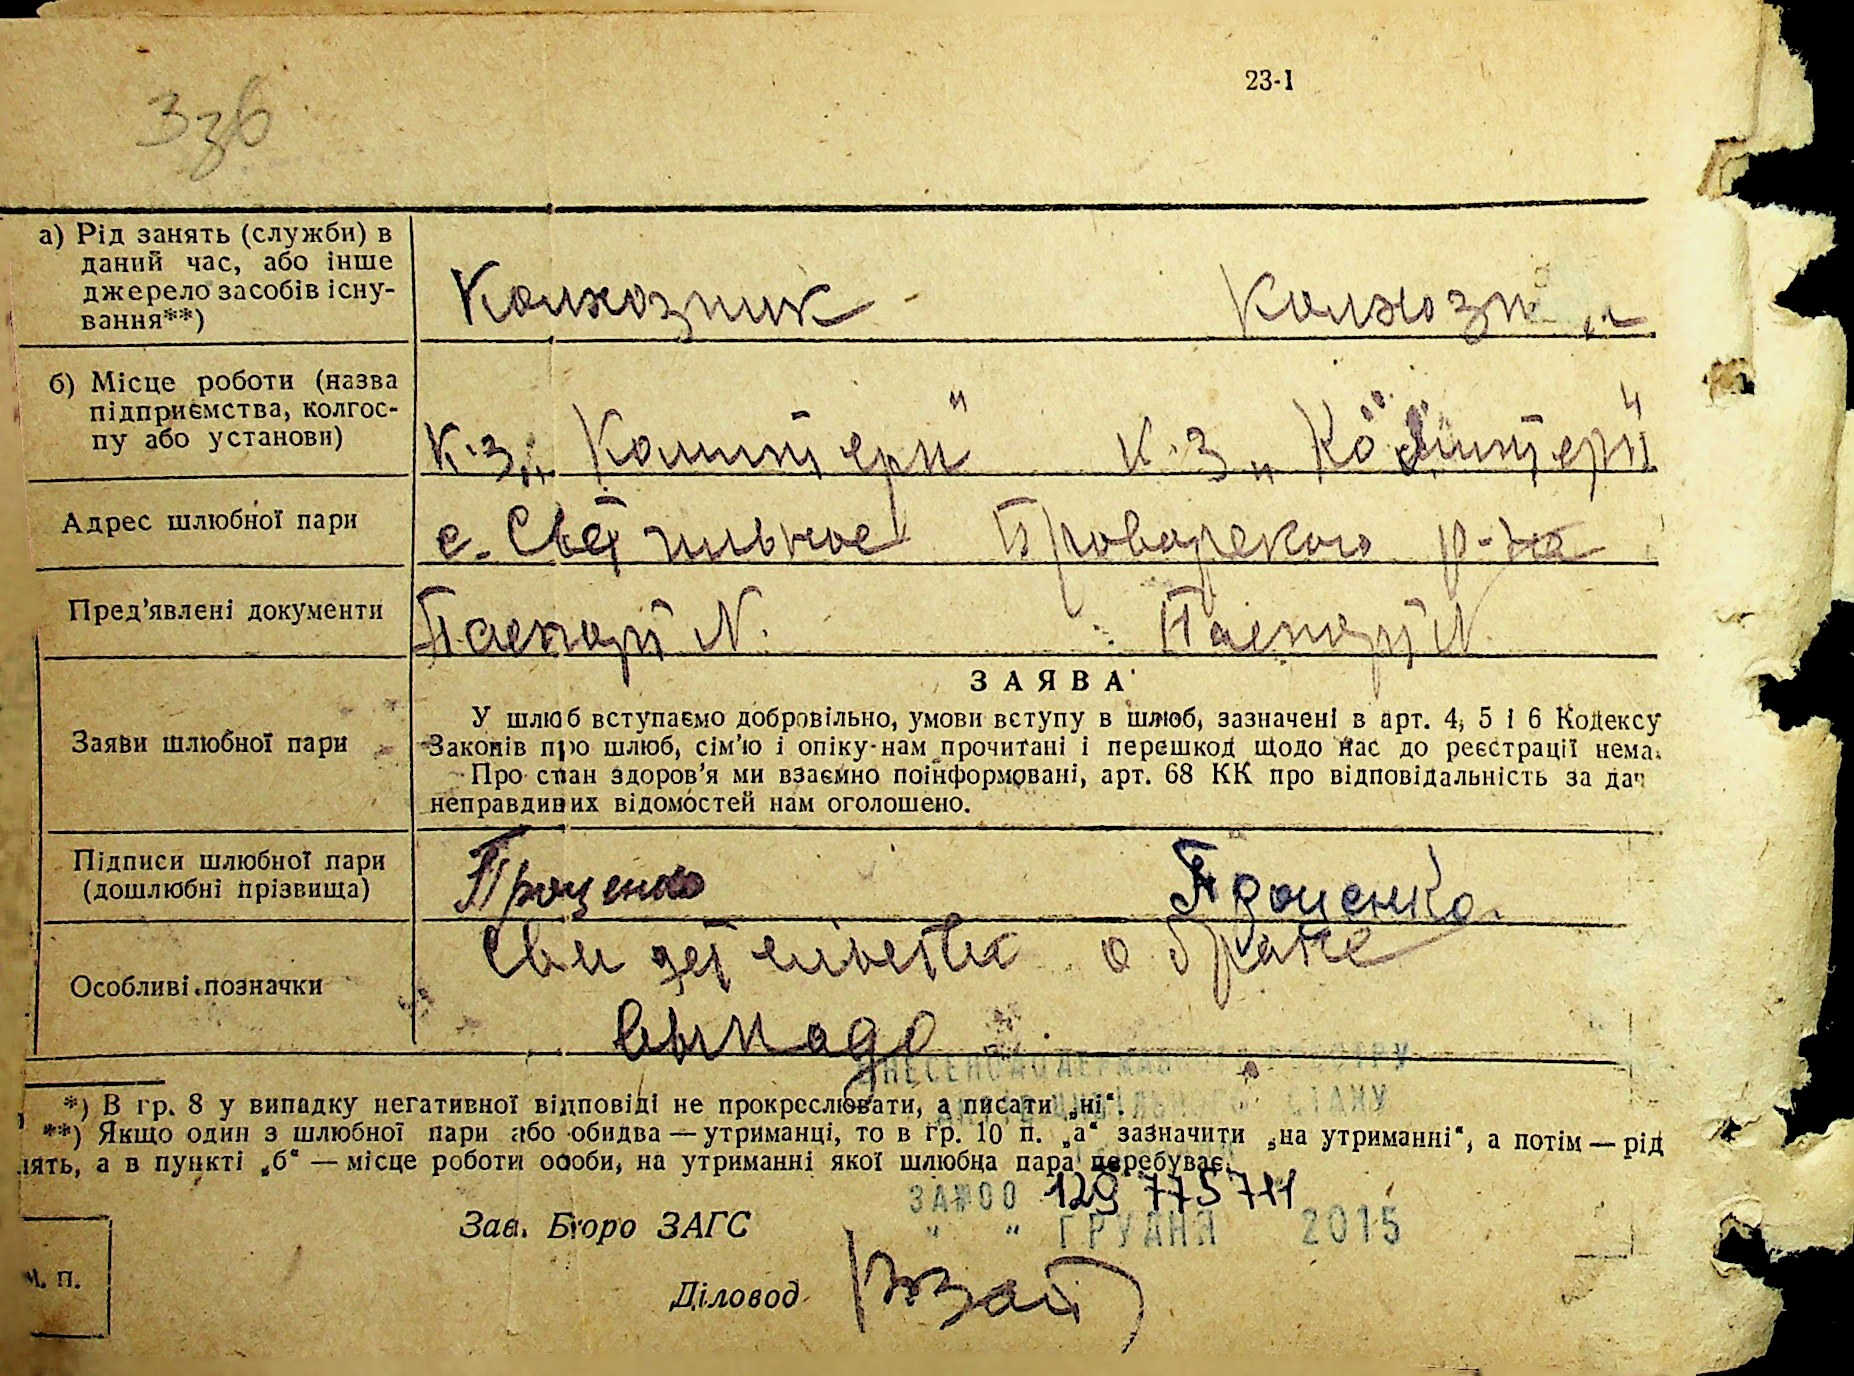 23-1
а) Рід занять (служби) в
даний час, або інше
джерело засобів існу-
вання**)
Колхозник
б) Місце роботи (назва
підприємства, колгос-
пу або установи)
к-з „Коминтерн"
к-з „Коминтерн"
Адрес шлюбної пари
с. Светильное Броварского р-на
Пред'явлені документи
Паспорт N.
Паспорт N.
ЗАЯВА
Заяви шлюбної пари
У шлюб вступаємо добровільно, умови вступу в шлюб, зазначені в арт. 4, 5 і 6 Кодексу
Законів про шлюб, сім'ю і опіку нам прочитані і перешкод щодо нас до реєстрації нема.
Про стан здоров'я ми взаємно поінформовані, арт. 68 КК про відповідальність за дач
неправдивих відомостей нам оголошено.
Підписи шлюбної пари
(дошлюбні прізвища)
Проценко
Проценко.
Особливі позначки
Свидетельства о браке
ВНЕСЕНО ДО ДЕРЖАВНОГО РЕЄСТРУ
СТАНУ
*) В гр. 8 у випадку негативної відповіді не прокреслювати, а писати „ні".
**) Якщо один з шлюбної пари або обидва — утриманці, то в гр. 10 п. „а" зазначити „на утриманні", а потім — рід
нять, а в пункті „б" — місце роботи особи, на утриманні якої шлюбна пара перебуває.
ЗА №00 129 775 711
" " ГРУДНЯ 2015
Зав. Бюро ЗАГС
М. П.
Діловод